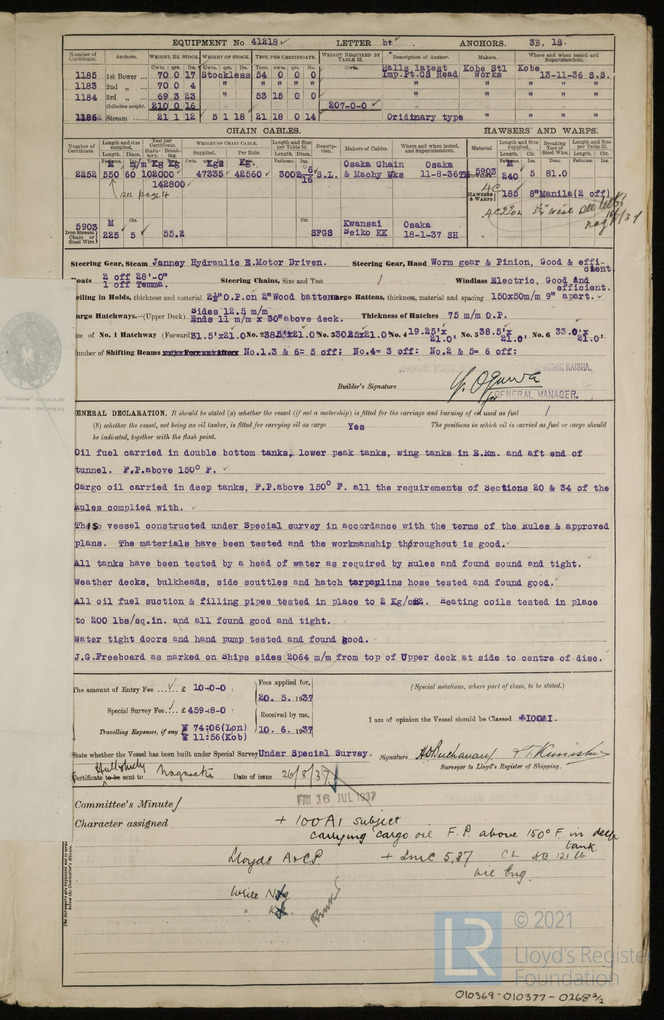 EQUIPMENT No 41218 LETTER b† ANCHORS. 3B. 1S.
Number of Certificate. Anchors. WEIGHT, EX. STOCK. WEIGHT OF STOCK. TEST, PER CERTIFICATE. WEIGHT REQUIRED BY TABLE 53. Description of Anchor. Makers. Where and when tested and Superintendent.
Cwts. qrs. lbs. Cwts. qrs. lbs. Tons. cwts. qrs. lbs. Cwts.
1185 1st Bower ... 70 0 17 Stockless 54 0 0 0 Halls latest Kobe Stl Kobe
Imp.Pt.CS Head Works 13-11-36 S.S.
1183 2nd „ 70 0 4 " " " "
1184 3rd „ 69 3 23 " 53 15 0 0 " " "
Collective weight. 210 0 16 207-0-0
1186 Stream ... 21 1 12 5 1 18 21 18 0 14 Oridinary type " "
CHAIN CABLES. HAWSERS AND WARPS.
Number of Certificate. Length and size supplied. Test per Certificate. WEIGHT OF CHAIN CABLE. Length and Size per Table 53. Description. Makers of Cables. Where and when tested, and Superintendent. Material. Length and size supplied. Breaking Test of Steel Wire. Length and Size per Table 53.
2252 550 60 102000 47335 42560 300 2 6/16 S.L. Osaka Chain Osaka
142800 & Machy Wks 11-8-36
see page 4
5903 240 5 81.0
185 8" Manila (2 off)
5903 M Kwansai Osaka
Iron Stream Chain or Steel Wire 225 5 55.2 SFGS Seiko KK 18-1-37 SH
Steering Gear, Steam Janney Hydraulic E.Motor Driven. Steering Gear, Hand Worm gear & Pinion, Good & efficient.
Boats 2 off 28'-0" 1 off Temma. Steering Chains, Size and Test / Windlass Electric, Good and efficient.
Ceiling in Holds, thickness and material 2½"O.P.on 2"Wood battens Cargo Battens, thickness, material and spacing 150x50m/m 9" apart.
Cargo Hatchways.—(Upper Deck) Sides 12.5 m/m Ends 11 m/m x 30"above deck. Thickness of Hatches 75 m/m O.P.
Size of No. 1 Hatchway (Forward) 31.5'x21.0' No. 2 38.5'x21.0' No. 3 30.25x21.0' No. 4 19.25'x 21.0' No. 5 38.5'x 21.0' No. 6 33.0'x 21.0'
Number of Shifting Beams No.1.3 & 6= 5 off; No.4= 3 off: No.2 & 5= 6 off:
Builder's Signature
GENERAL MANAGER.
GENERAL DECLARATION. It should be stated (a) whether the vessel (if not a motorship) is fitted for the carriage and burning of oil used as fuel /
(b) whether the vessel, not being an oil tanker, is fitted for carrying oil as cargo Yes The positions in which oil is carried as fuel or cargo should
be indicated, together with the flash point.
Oil fuel carried in double bottom tanks, lower peak tanks, wing tanks in E.Rm. and aft end of
tunnel. F.P.above 150° F.
Cargo oil carried in deep tanks, F.P.above 150° F. all the requirements of Sections 20 & 34 of the
Rules complied with.
This vessel constructed under Special survey in accordance with the terms of the Rules & approved
plans. The materials have been tested and the workmanship thøroughout is good.
All tanks have been tested by a head of water as required by Rules and found sound and tight.
Weather decks, bulkheads, side scuttles and hatch tarpaulins hose tested and found good.
All oil fuel suction & filling pipes tested in place to 2 Kg/cm2. Heating coils tested in place
to 200 lbs/sq.in. and all found good and tight.
Water tight doors and hand pump tested and found good.
J.G.Freeboard as marked on Ships sides 2064 m/m from top of Upper deck at side to centre of disc.
The amount of Entry Fee ... £ 10-0-0
Fees applied for, 20. 5. 1937
(Special notations, where part of class, to be stated.)
Special Survey Fee ... £ 459-8-0
Received by me, 10. 6. 1937
I am of opinion the Vessel should be Classed *100A1.
Travelling Expenses, if any ¥ 74:06(Lon)
¥ 11:56(Kob)
State whether the Vessel has been built under Special Survey Under Special Survey. Signature
Surveyor to Lloyd's Register of Shipping.
Certificate to be sent to Nagasaki Date of issue 26/8/37
Committee's Minute FRI 16 JUL 1937
Character assigned + 100A1 subject
carrying cargo oil F.P. above 150° F in deep tank.
Lloyds A&CP + LMC 5,37 CL
oil Eng.
Write
© 2021
LR
Lloyd's Register
Foundation
010369-010377-0268 2/2